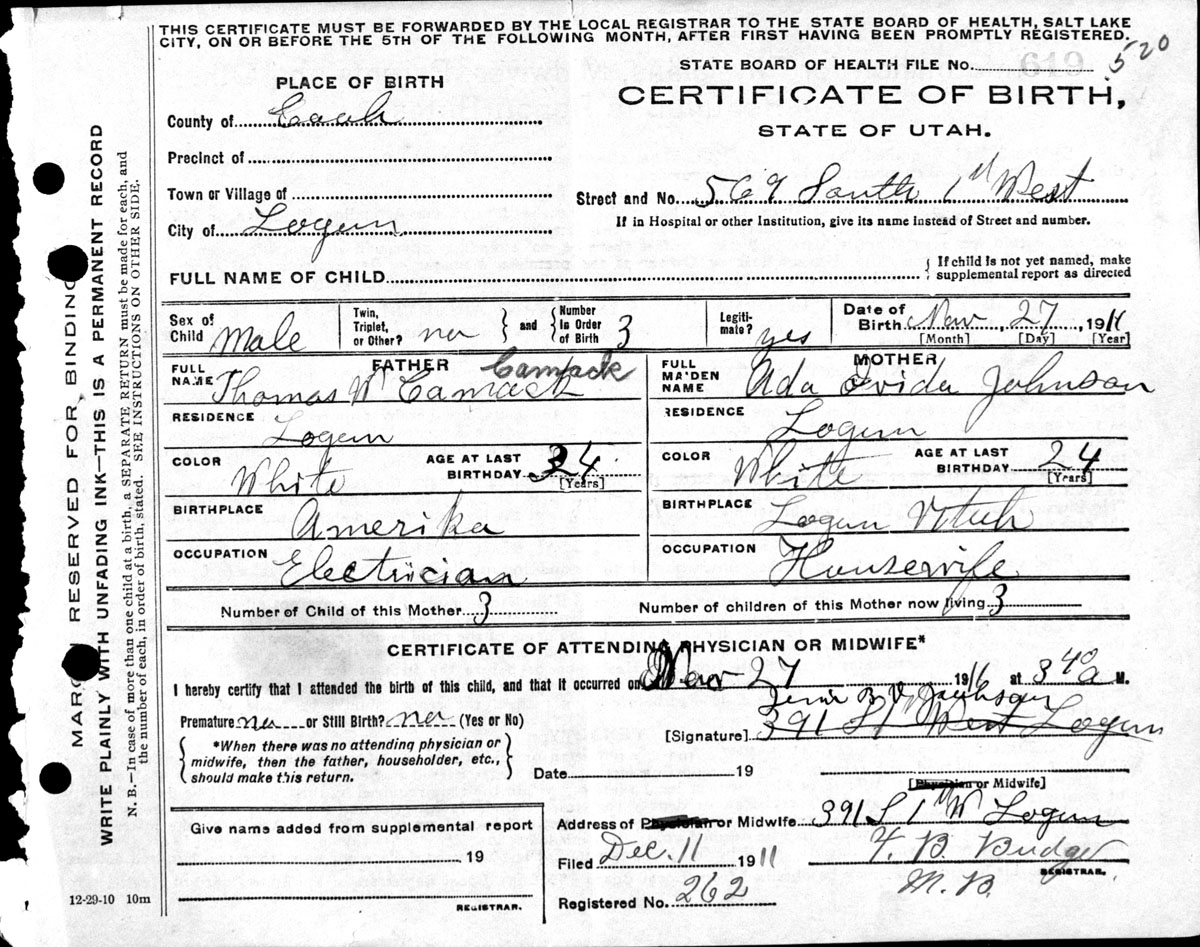 THIS CERTIFICATE MUST BE FORWARDED BY THE LOCAL REGISTRAR TO THE STATE BOARD OF HEALTH, SALT LAKE
CITY, ON OR BEFORE THE 5TH OF THE FOLLOWING MONTH, AFTER FIRST HAVING BEEN PROMPTLY REGISTERED.
MARGI RESERVED FOR BINDING
WRITE PLAINLY WITH UNFADING INK—THIS IS A PERMANENT RECORD
N. B.—In case of more than one child at a birth, a SEPARATE RETURN must be made for each, and
the number of each, in order of birth, stated. SEE INSTRUCTIONS ON OTHER SIDE.
PLACE OF BIRTH
County of Cach
Precinct of
Town or Village of
City of Logun
STATE BOARD OF HEALTH FILE No. 619 520
CERTIFICATE OF BIRTH,
STATE OF UTAH.
Street and No. 569 South 1st West
If in Hospital or other Institution, give its name instead of Street and number.
FULL NAME OF CHILD
If child is not yet named, make
supplemental report as directed
Sex of Child Male
Twin, Triplet, or Other? no and Number In Order of Birth 3
Legiti-mate? yes
Date of Birth Nov 27, 1911
[Month] [Day] [Year]
FATHER
FULL NAME Thomas W Camack Camack
RESIDENCE Logun
COLOR White AGE AT LAST BIRTHDAY 34
[Years]
BIRTHPLACE Amerika
OCCUPATION Electrician
MOTHER
FULL MAIDEN NAME Ada Ovida Johnson
RESIDENCE Logun
COLOR White AGE AT LAST BIRTHDAY 24
[Years]
BIRTHPLACE Logun Utuh
OCCUPATION Housewife
Number of Child of this Mother 3 Number of children of this Mother now living 3
CERTIFICATE OF ATTENDING PHYSICIAN OR MIDWIFE*
I hereby certify that I attended the birth of this child, and that it occurred on Nov 27 1911 at 3 40 a M.
Premature no or Still Birth? no (Yes or No)
*When there was no attending physician or
midwife, then the father, householder, etc.,
should make this return.
[Signature] 391 S 1 West Logun
Date 19
[Physician or Midwife]
Give name added from supplemental report
19
REGISTRAR.
Address of Physician or Midwife 391 S 1st W Logun
Filed Dec. 11 1911 Budge
M. D.
REGISTRAR.
Registered No. 262
12-29-10 10m